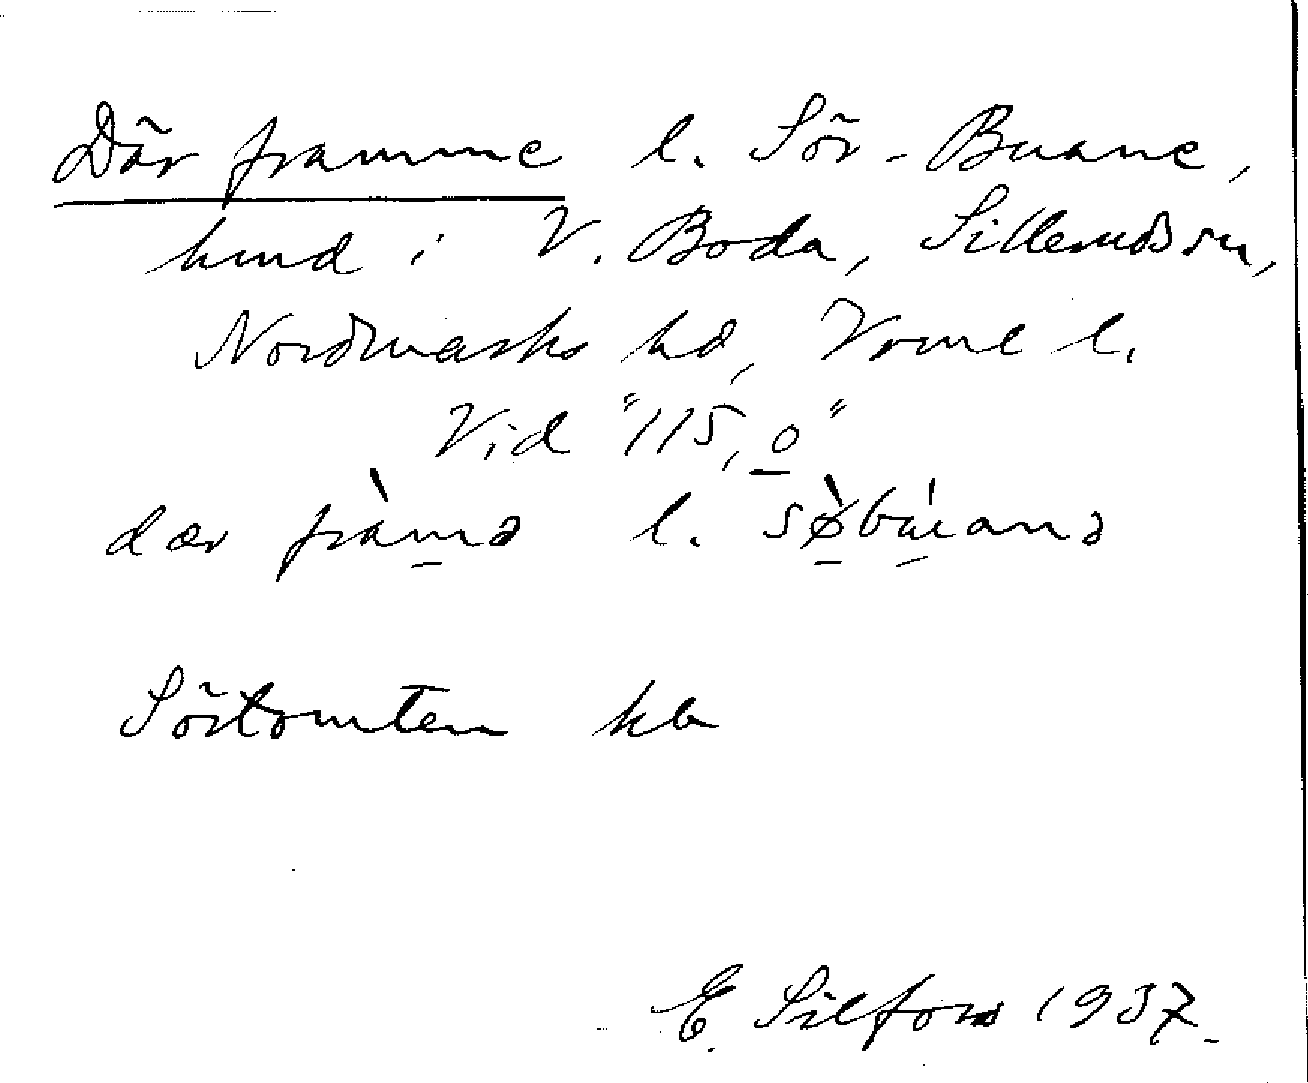 Där framme l. Sör-Buane,
hmd i V. Boda, Sillerudssn,
Nordmarks hd, Vrml l.
Vid "115,o"
dær framə l. søbuanə
Sörtomten kb
E. Silfors 1937.